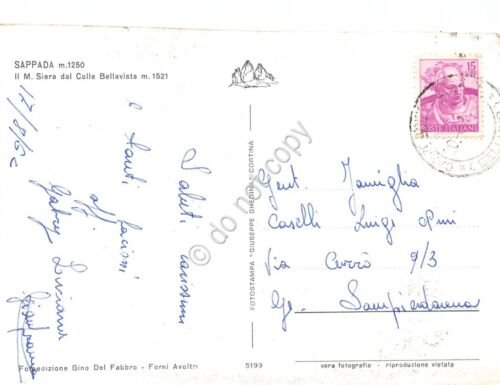 SAPPADA m.1250
Il M. Siera dal Colle Bellavista m. 1521
17/8/62
Saluti carissimi
e tanti
affacioni
Gabry Luciana
Gianfranco
15
POSTE ITALIANE
Gent. Famiglia
Caselli Luigi Pini
Via Cerrò 9/3
Ge. Sampierdarena
FOTOSTAMPA "GIUSEPPE GHEDINA" - CORTINA
© do not copy
Fotoedizione Gino Del Fabbro - Forni Avoltri
5199
vera fotografia - riproduzione vietata